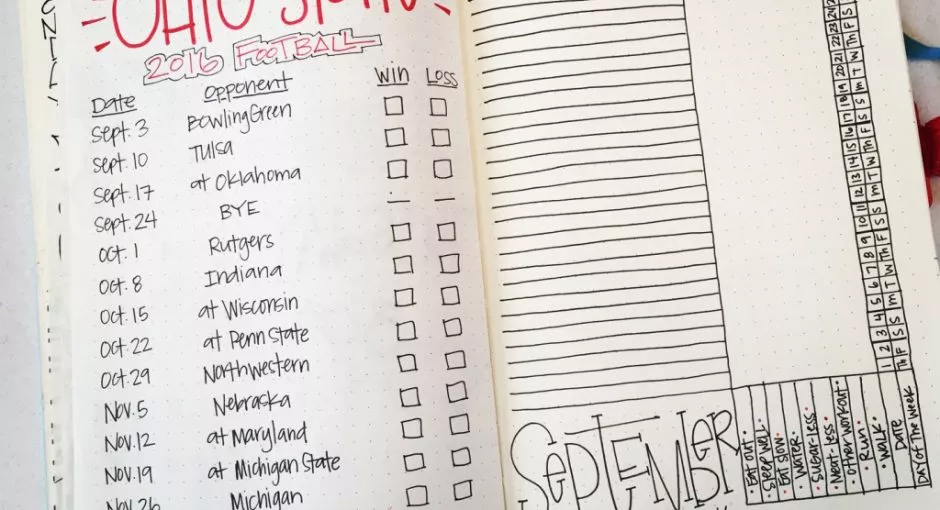 OHIO STATE
2016 FOOTBALL
Date Opponent Win Loss
Sept. 3 Bowling Green
Sept. 10 Tulsa
Sept. 17 at Oklahoma
Sept. 24 BYE - -
Oct. 1 Rutgers
Oct. 8 Indiana
Oct. 15 at Wisconsin
Oct. 22 at Penn State
Oct. 29 Northwestern
Nov. 5 Nebraska
Nov. 12 at Maryland
Nov. 19 at Michigan State
Nov. 26 Michigan
SEPTEMBER
• Eat out •
• Sleep well •
• Eat slow •
• Water •
• Sugar-less •
• Meat-less •
• Other workout •
• Run •
• Walk •
Date 1 2 3 4 5 6 7 8 9 10 11 12 13 14 15 16 17 18 19 20 21 22 23 24
Day of the week Th F S S M T W Th F S S M T W Th F S S M T W Th F S